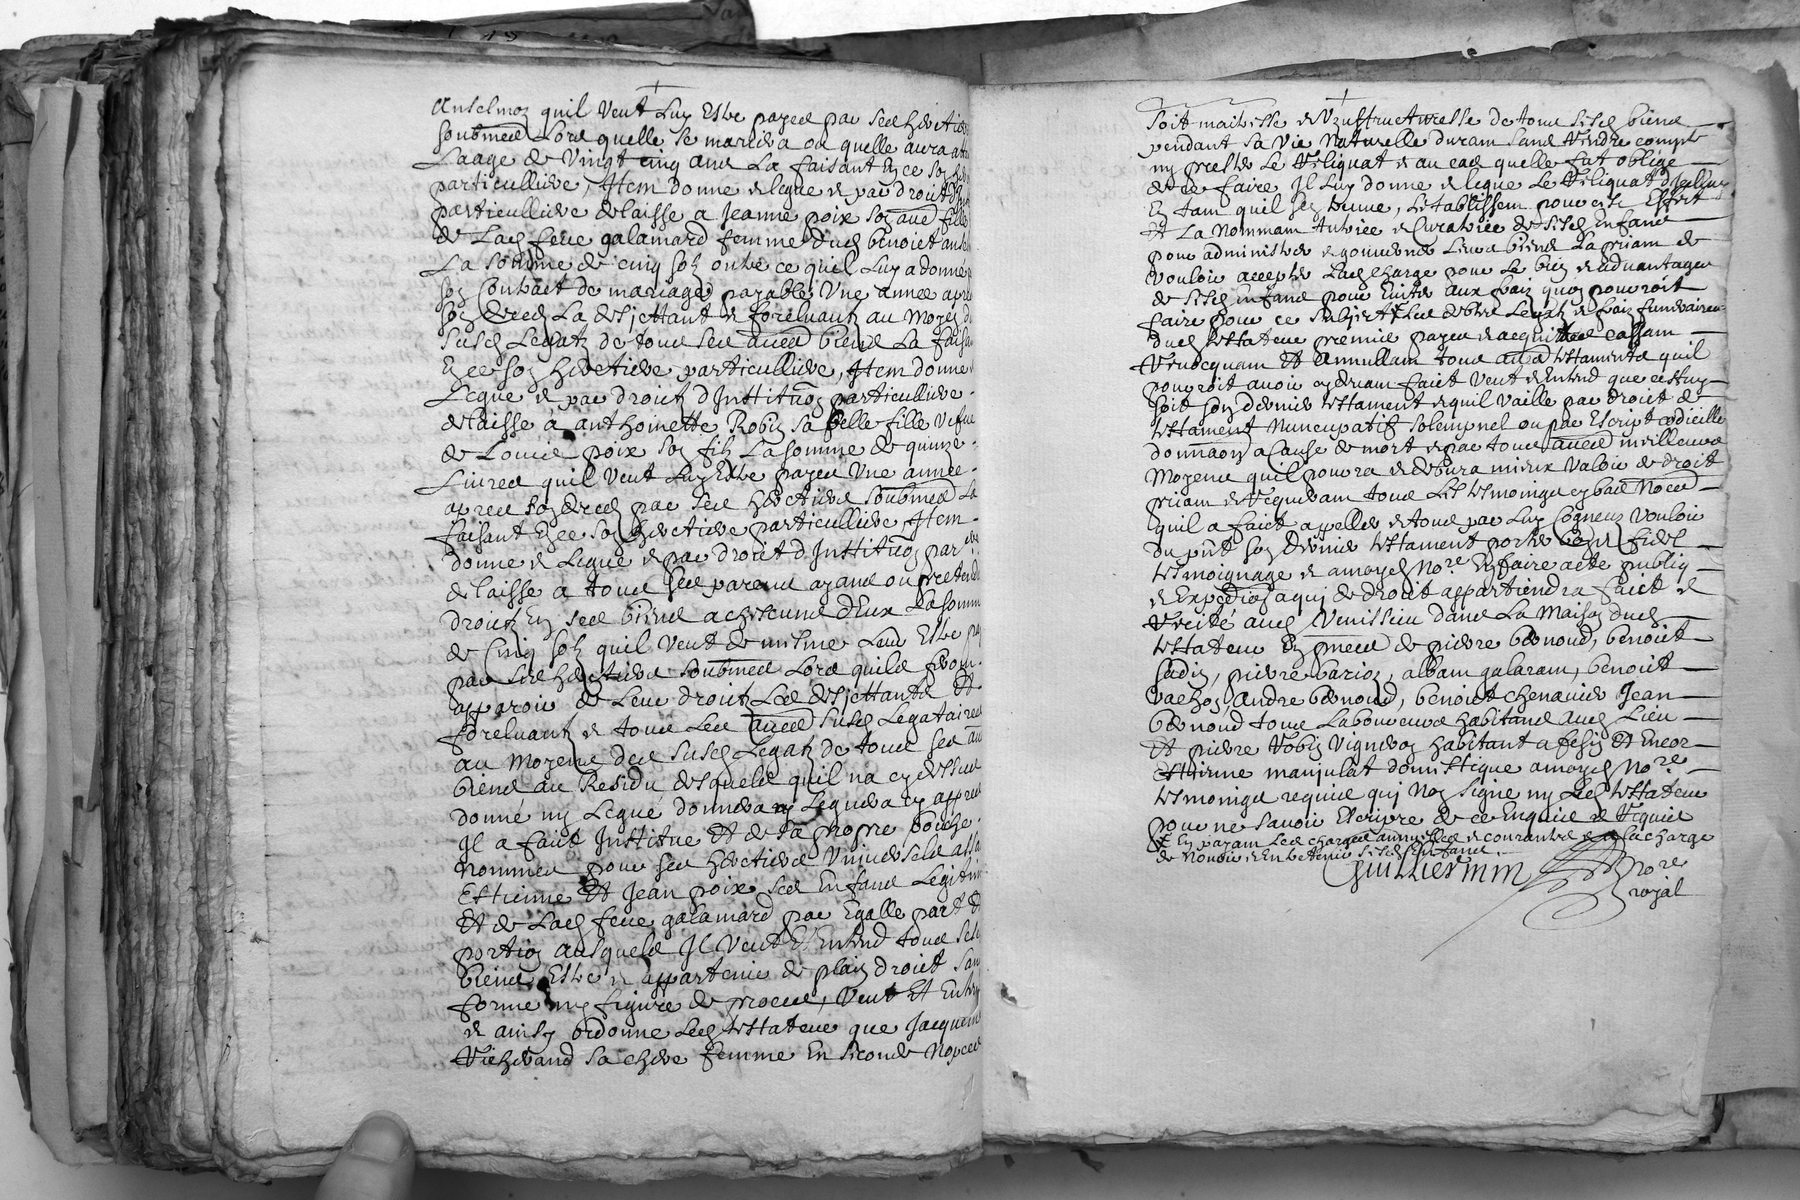 Anselmoz quil veut luy estre payee par ses heritiers
soubmes lors quelle se mariera ou quelle aura atta
laage de vingt cinq ans la faisant en ce son her
particulliere, Item donne & legue & par droit d'Ins
particulliere delaisse a Jeanne poix son aue fille
& de lad feue galamard femme dud benoict an
la somme de cinq solz outre ce quil luy a donné
son contrait de mariage payables une annee apres
son decedz la desjettant & forcluant au moyen du
susd legatz de tous ses aues biens la faisa
en ce son heritiere particulliere, Item donne
legue & par droict d Institu͠on particulliere
delaisse a anthoinette Robin sa belle fille vefue
de Louis poix son filz la somme de quinze
livres quil veut luy estre payee une annee
apres son deces par ses heritiers soubmes la
faisant en ce son heritiere particulliere Item
donne & legue & par droict d Institu͠on par
delaisse a tous ses parens ayans ou pretend
droictz en ses biens a chescung d'Eux la somm
de cinq solz quil veut de mesme leur estre pay
par ses heritiers soubmes lors quilz feron
apparoir de leur droictz les desjettants et
forcluantz & tous les aues susd legataires
au moyens des susd legatz de tous ses au
biens au residu desquels quil na cy dessus
donné ny legué donnera ny leguera cy appres
Il a faict Institue et de sa propre bouche
nommes pour ses heritiers universels assa
Estienne et Jean poix ses enfans legitim
et de lad feue galamard par egalle part &
portion ausquels Il veut et entend tous sesd
biens estre & appartenir de plain droict san
forme ny figure de proces, veut et enten
& ainsy ordonne led testateur que Jacquem
Vichirand sa chere femme en seconde nopces
soit maitresse & uzuffructuresse de tous sesd biens
pendant sa vie naturelle durant sans rendre compte
ny prester le reliquat & au cas quelle fut obligé
de ce faire Il luy donne & legue le reliquat dicelluy
en tant quil sen treuve, lestablissant pour cest effect
et la nommant tutrice & curatrice de sesd enfans
pour administrer & gouverner leurs biens la priant de
vouloir accepter lad charge pour le bien & advantage
de sesd enfans pour eviter aux frais quon pourroit
faire pour ce subject les debtes legatz & frais funeraires
dud testateur premier payes & acquittes cassant
revocquant et annullant tous aues testaments quil
pourroit avoir cy devant faict veut & entend que cestuy
soit son dernier testament & quil vaille par droict de
testament nuncupatif solempnel ou par escript codicille
dona͠on a cause de mort & par tous aues meilleurs
moyens quil pourra & debvra mieux valoir de droict
priant & requerant tous les tesmoings cy bas no͠es
quil a faict appeller & tous par luy cogneuz vouloir
du pn͠t son dernier testament porter bon & fidel
tesmoignage & amoyd no.re en faire acte public
& expedie͠ a qui de droict appartiendra faict &
recité aud Venissieu dans la maison dud
testateur en pn͠ce de pierre bernoud, benoict
sadin, pierre varion, alban galaram, benoict
vachon, andre bernoud, benoict chenavier Jean
bernoud tous laboureurs habitans aud lieu
et pierre robin vigneron habitant a fesin et encor
estienne manjulat domestique amoyd no.re
tesmoings requis qui non signé ny led testateur
pour ne savoir escripre de ce enquis & requis
& en payant les charges annuelles & courantes & a la charge
de nourir & entretenir sesd enfans
Guilliermin no.re
royal